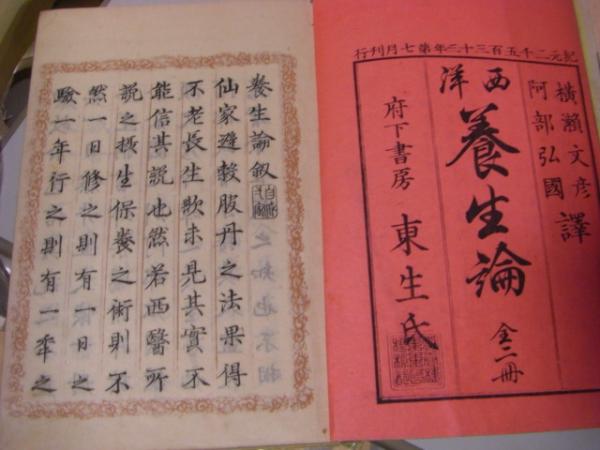 紀元二千五百三十三年第七月刊行
橫瀨文彦
阿部弘國
譯
西洋
養生論
全二冊
府下書房
東生氏
養生論叙
仙家避穀服丹之法果得
不老長生歟未見其實不
能信其説也然若西醫所
説之摂生保養之術則不
然一日修之則有一日之
驗一年行之則有一秊之